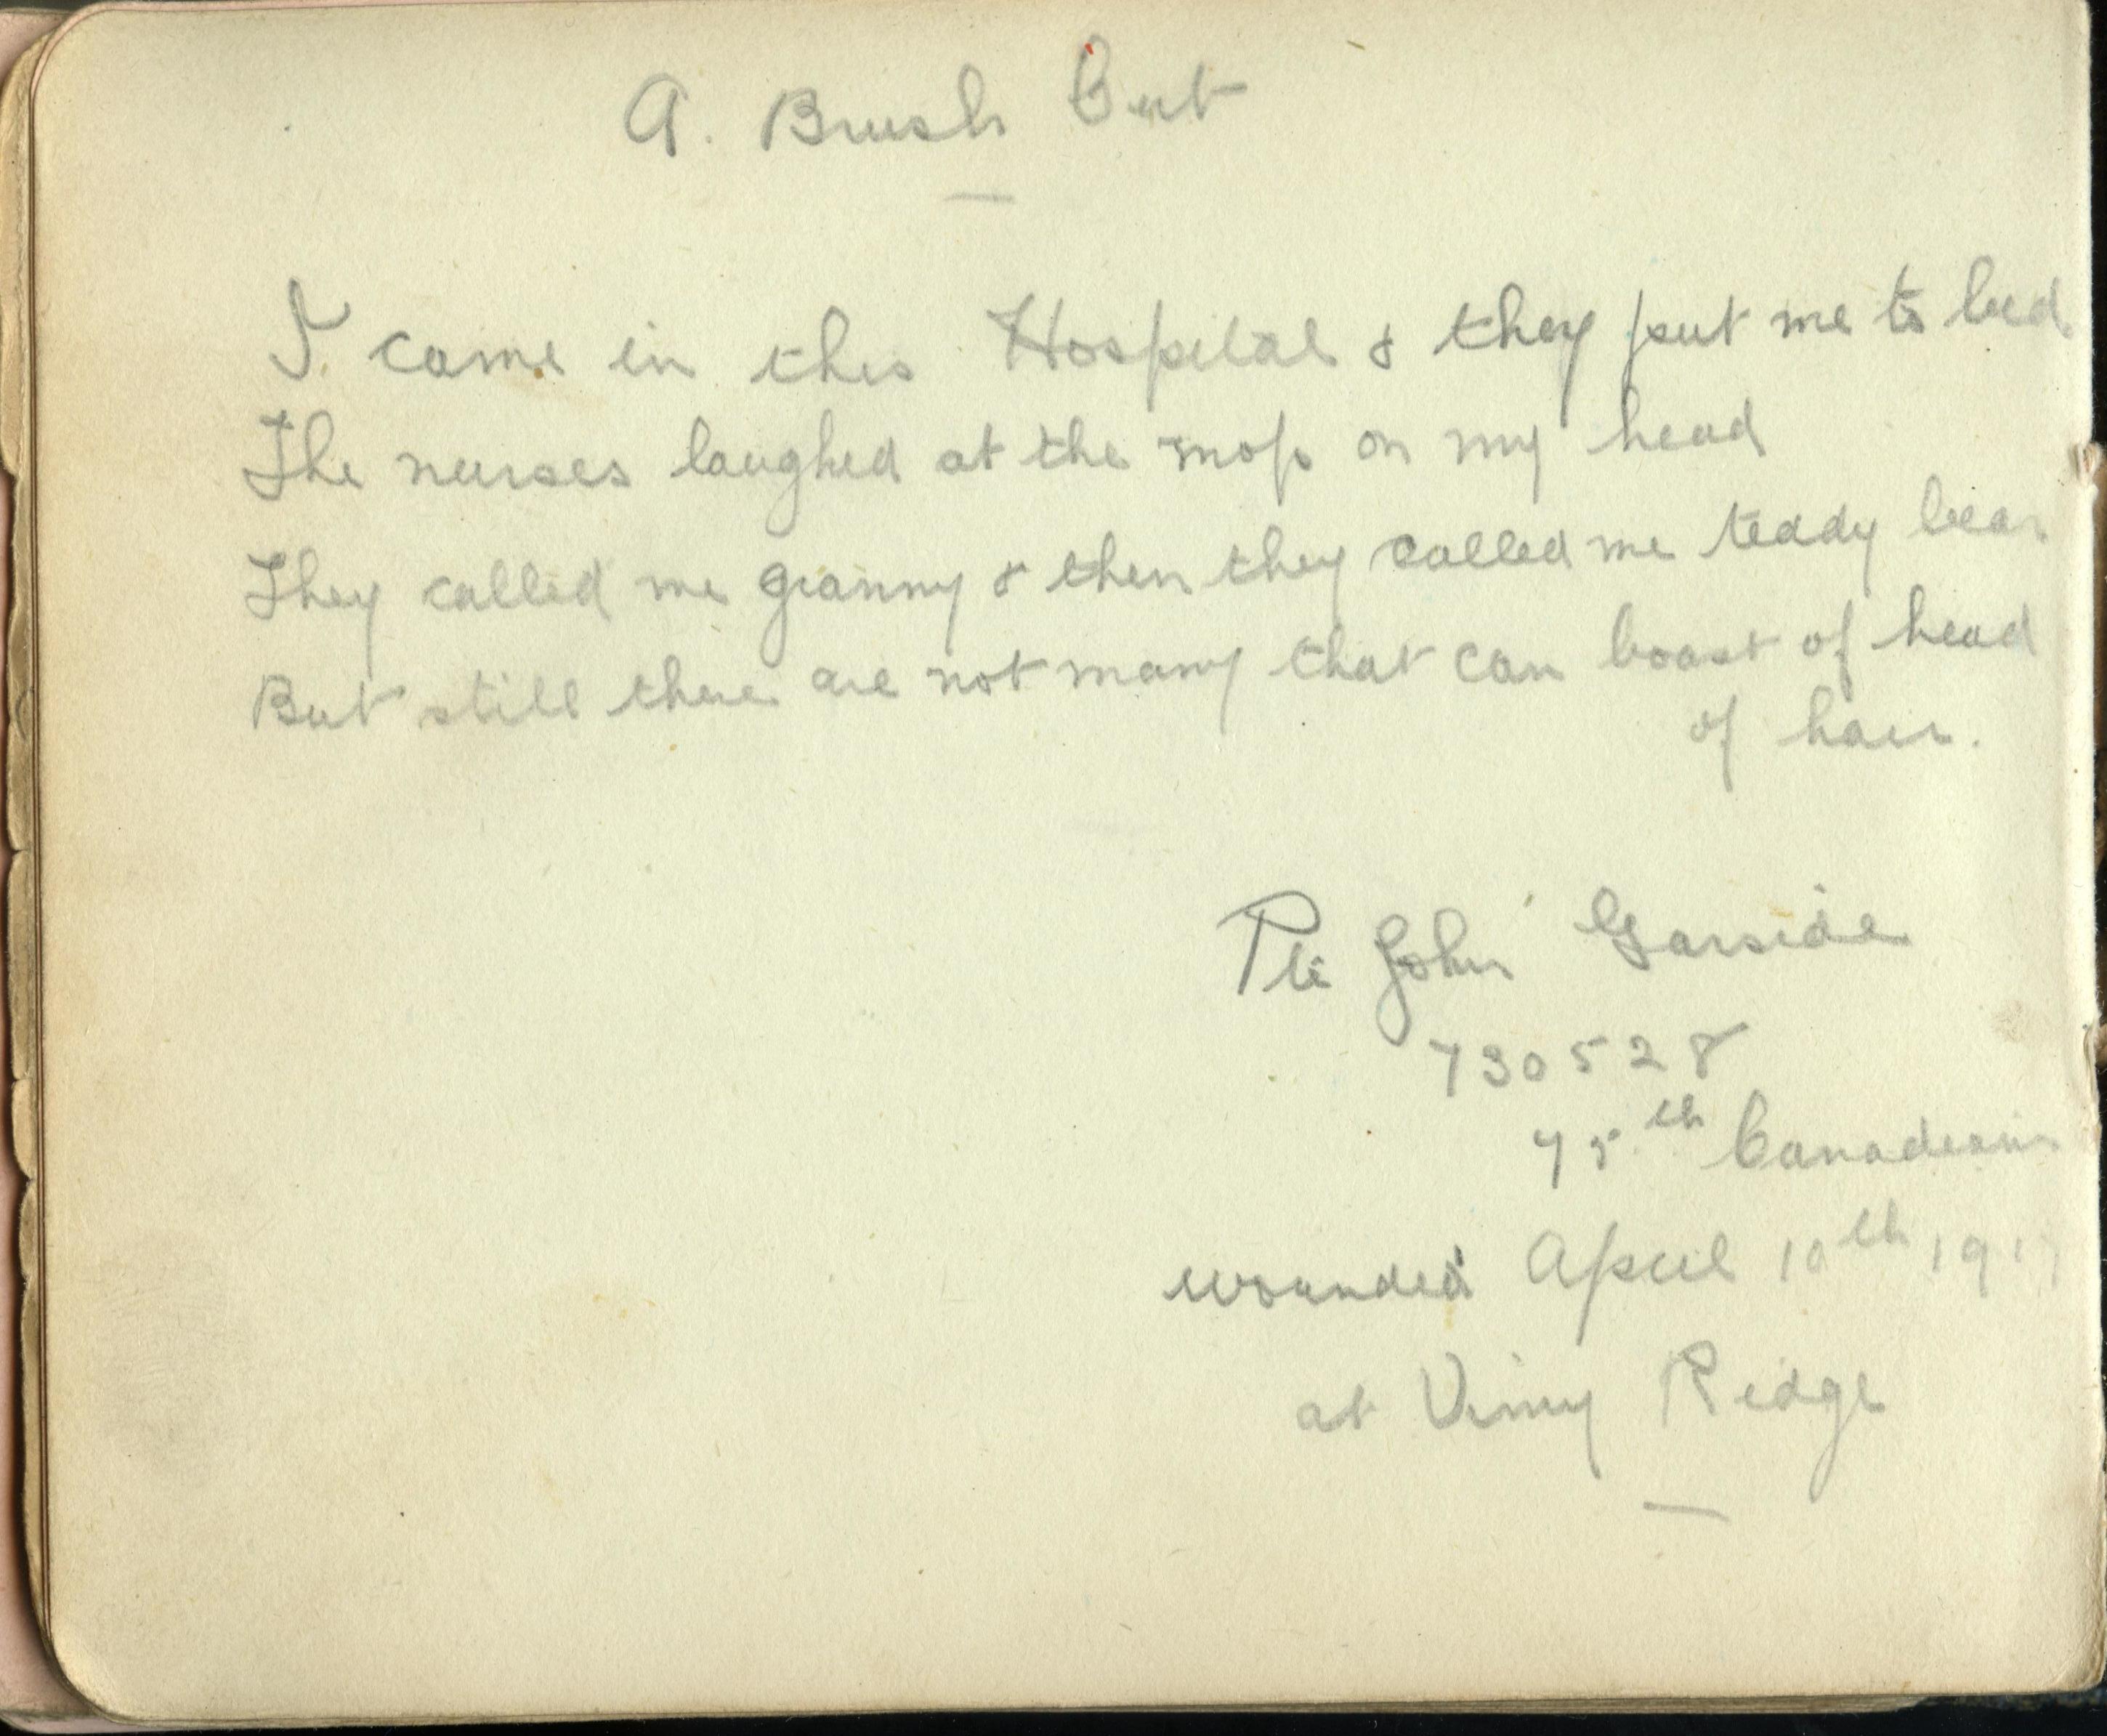 A. Brush Cut
I came in this Hospital & they put me to bed
The nurses laughed at the mop on my head
They called me granny & then they called me teddy bear
But still there are not many that can boast of head
of hair.
Pte John Garside
730528
75th Canadians
wounded April 10th 1917
at Vimy Ridge